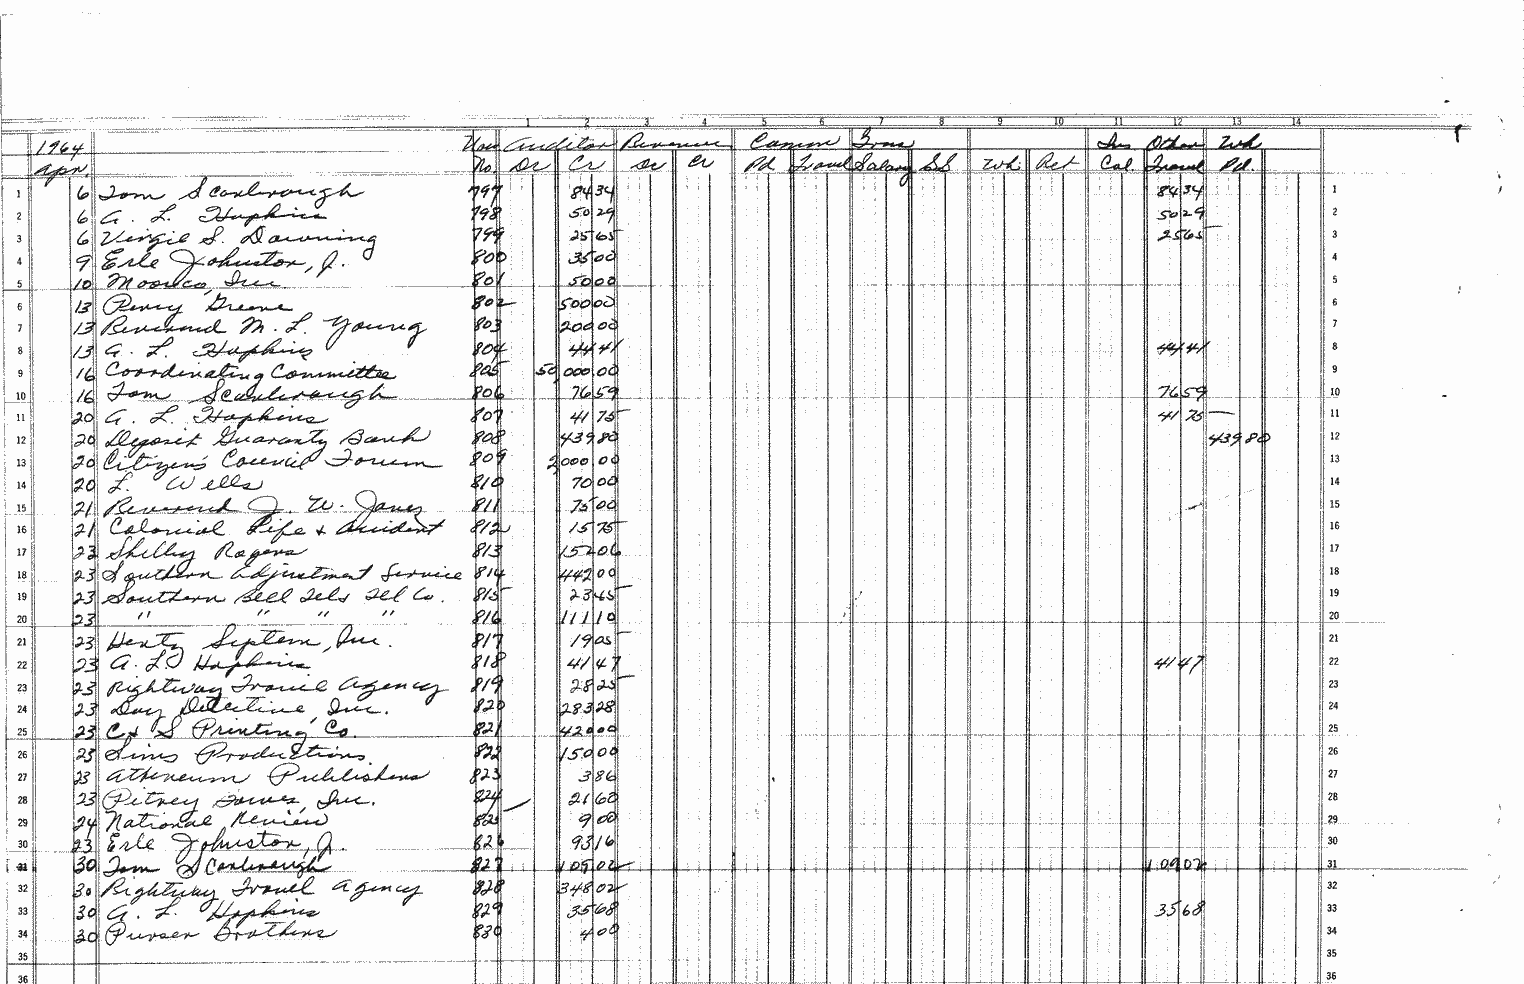 1 2 3 4 5 6 7 8 9 10 11 12 13 14
1964 Auditor Revenue Comm Gross Ins Other Wh
Apr. No. Dr Cr Dr Cr Pd. Travel Salary SS Wh Ret Col. Travel Pd.
1 6 Tom Scarbrough 797 84 34 84 34 1
2 6 A. L. Hopkins 798 50 29 50 29 2
3 6 Virgil S. Downing 799 25 65 25 65 3
4 9 Erle Johnston, Jr. 800 35 00 4
5 10 Moorco, Inc. 801 50 00 5
6 13 Percy Greene 802 500 00 6
7 13 Reverend M. L. Young 803 200 00 7
8 13 A. L. Hopkins 804 44 41 44 41 8
9 16 Coordinating Committee 805 50,000.00 9
10 16 Tom Scarbrough 806 76 59 76 59 10
11 20 A. L. Hopkins 807 41 75 41 75 11
12 20 Deposit Guaranty Bank 808 439 80 439 80 12
13 20 Citizens' Council Forum 809 2,000.00 13
14 20 L. Wells 810 70 00 14
15 21 Reverend J. W. Jones 811 75 00 15
16 21 Colonial Life & Accident 812 15 75 16
17 23 Shelby Rogers 813 152 06 17
18 23 Southern Adjustment Service 814 442 00 18
19 23 Southern Bell Tel & Tel Co. 815 23 45 19
20 23 " " " " 816 111 10 20
21 23 Hertz System, Inc. 817 19 05 21
22 23 A. L. Hopkins 818 41 47 41 47 22
23 23 Rightway Travel Agency 819 28 25 23
24 23 Day Detective, Inc. 820 283 28 24
25 23 C & S Printing Co. 821 420 00 25
26 23 Sims Productions 822 150 00 26
27 23 Atheneum Publishers 823 3 86 27
28 23 Pitney Bowes, Inc. 824 21 60 28
29 24 National Review 825 9 00 29
30 23 Erle Johnston, Jr. 826 93 16 30
31 30 Tom Scarbrough 827 109 02 109 02 31
32 30 Rightway Travel Agency 828 348 02 32
33 30 A. L. Hopkins 829 35 68 35 68 33
34 30 Purser Brothers 830 4 00 34
35 35
36 36